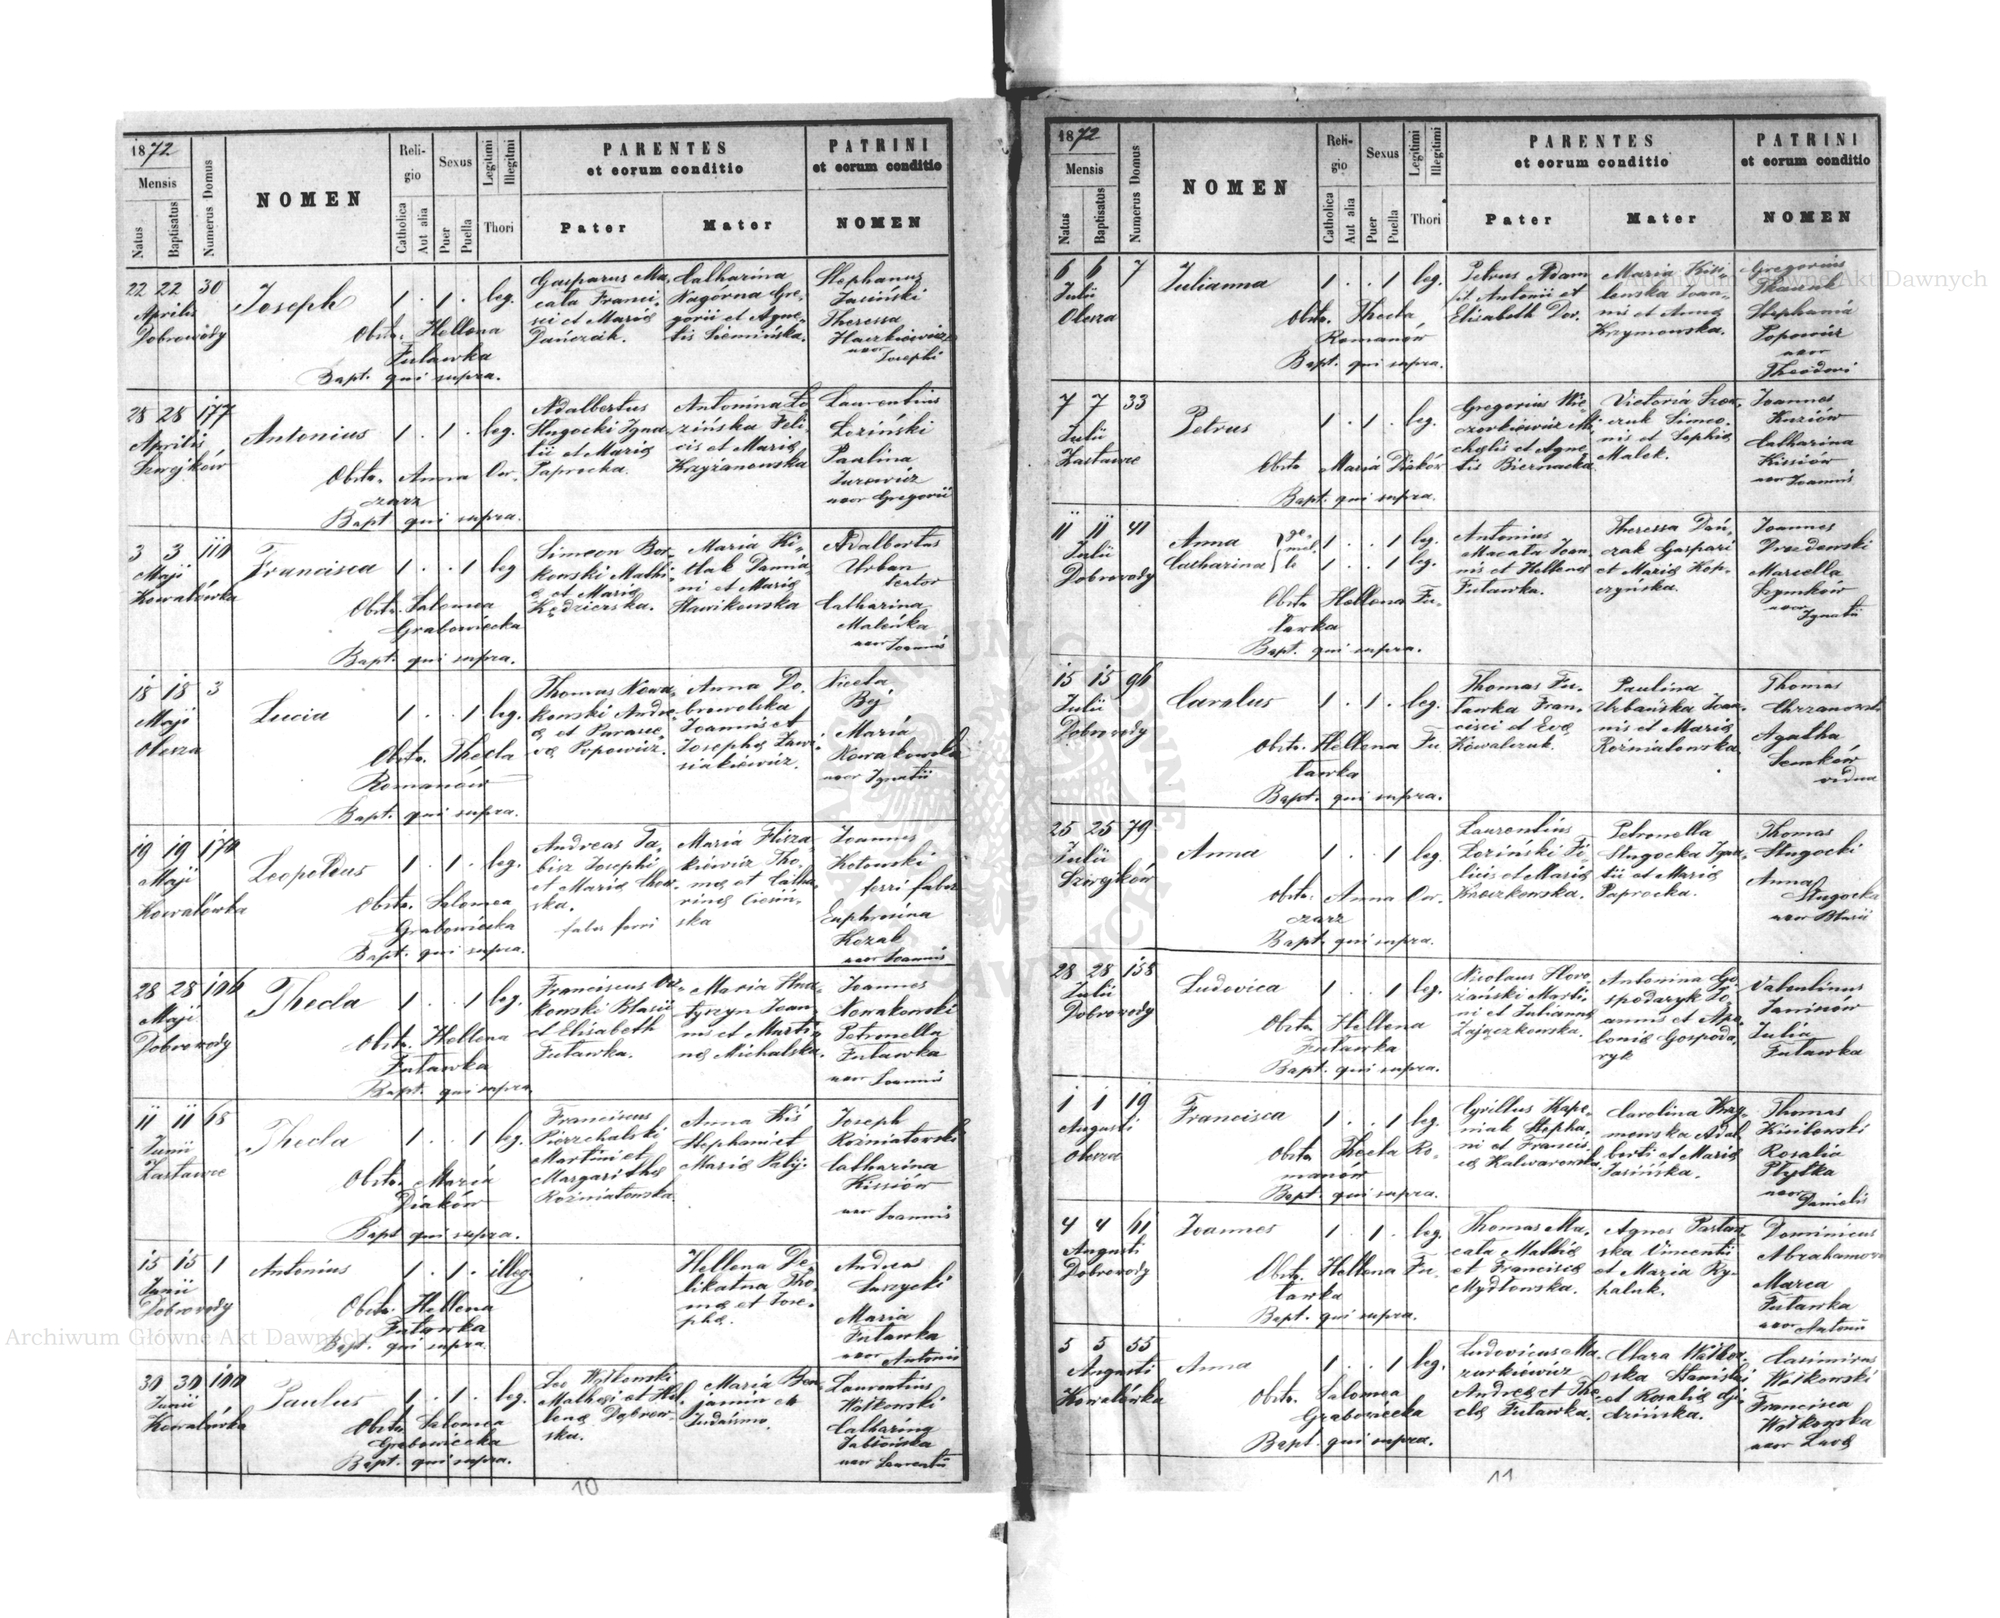 1872
Mensis
Natus
Baptisatus
Numerus Domus
NOMEN
Reli-
gio
Catholica
Aut alia
Sexus
Puer
Puella
Legitimi
Illegitimi
Thori
PARENTES
et eorum conditio
Pater
Mater
PATRINI
et eorum conditio
NOMEN
22 22 30
Aprilis
Dobrowody
Joseph
1 . 1 . leg.
Obstr. Hellena
Futawka
Bapt. qui supra.
Gasparus Ma-
cata Franci-
sci et Maria
Dańczak.
Catharina
Nagórna Gre-
gorii et Agne-
tis Siemińska.
Stephanus
Jasiński
Theressa
uxor Josephi
28 28 177
Aprilis
Szwejków
Antonius
1 . 1 . leg.
Obstr. Anna Ow-
czarz
Bapt qui supra.
Adalbertus
Stugocki Igna-
tii et Maria
Paprocka.
Antonina Lo-
zińska Feli-
cis et Maria
Krzyżanowska
Laurentius
Loziński
Paulina
Jurowicz
uxor Gregorii
3 3 110
Maji
Kowalówka
Francisca
1 . . 1 leg
Obstr. Salomea
Grabowiecka
Bapt. qui supra.
Simeon Bor-
kowski Mathi-
æ et Maria
Kędzierska.
Maria Ki-
tlak Damia-
ni et Maria
Stawikowska
Adalbertus
Urban
textor
Catharina
Maleńka
uxor Joannis
18 18 3
Maji
Olesza
Lucia
1 . . 1 leg.
Obstr. Thecla
Romanów
Bapt. qui supra.
Thomas Nowa-
kowski Andre-
æ et Parasce-
va Popowicz.
Anna Do-
browolska
Joannis et
Josepha Ław-
siakiewicz.
Niceta
Bij
Maria
Nowakowska
uxor Ignatii
19 19 170
Maji
Kowalówka
Leopoldus
1 . 1 . leg.
Obstr. Salomea
Grabowiecka
Bapt. qui supra.
Andreas Ta-
bisz Josephi
et Maria
ska.
faber ferri
Maria Flisza-
kiewicz Tho-
mæ et Catha-
rina Ciesiń-
ska
Joannes
Kotowski
ferri faber
Euphrosina
Kozak
uxor Joannis
28 28 106
Maji
Dobrowody
Thecla
1 . . 1 leg.
Obstr. Hellena
Futawka
Bapt. qui supra.
Franciscus
kowski Blasii
et Elisabeth
Futawka.
Maria Hna-
tyszyn Joan-
nis et Marti-
na Michalska.
Joannes
Nowakowski
Petronella
Futawka
uxor Joannis
11 11 68
Junii
Zastawce
Thecla
1 . . 1 leg.
Obstr. Maria
Diaków
Bapt qui supra.
Franciscus
Pierzchalski
Martini et
Margaritha
Rozniatowska.
Anna Kiś
Stephani et
Maria Palij.
Joseph
Rozniatowski
Catharina
Kissiów
uxor Joannis
15 15 1
Junii
Dobrowody
Antonius
1 . 1 . illeg.
Obstr. Hellena
Futawka
Bapt. qui supra.
Hellena De-
likatna Tho-
mæ et Jose-
pha.
Andreas
Maria
Futawka
uxor Antonii
30 30 100
Junii
Kowalówka
Paulus
1 . 1 . leg.
Obstr. Salomea
Grabowiecka
Bapt. qui supra.
Leo Watkowski
Mathæi et Hel-
lena Dąbrow-
ska.
Maria Ben-
jamin ex
Judaismo.
Laurentius
Watkowski
Catharina
Jabłońska
uxor Laurentii
10
1872
Mensis
Natus
Baptisatus
Numerus Domus
NOMEN
Reli-
gio
Catholica
Aut alia
Sexus
Puer
Puella
Legitimi
Illegitimi
Thori
PARENTES
et eorum conditio
Pater
Mater
PATRINI
et eorum conditio
NOMEN
6 6 7
Julii
Olesza
Julianna
1 . . 1 leg.
Obstr. Thecla
Romanów
Bapt. qui supra.
Petrus Adam
fil Antonii et
Elisabeth Dor.
Maria Kisi-
lewska Joan-
nis et Anna
Krzymowska.
Gregorius
Stephania
Popowicz
uxor
Theodori
7 7 33
Julii
Zastawce
Petrus
1 . 1 . leg.
Obstr Maria Diaków
Bapt. qui supra.
Gregorius Wie-
czorkiewicz Mi-
chælis et Agne-
tis Biernacka.
Victoria Szew-
czuk Simeo-
nis et Sophia
Malek.
Joannes
Kuziów
Catharina
Kissiów
uxor Joannis
11 11 41
Julii
Dobrowody
Anna
Catharina
ge-
mel-
læ
1 . . 1 leg.
1 . . 1 leg.
Obstr Hellena Fu-
tawka
Bapt. qui supra.
Antonius
Macata Joan-
nis et Hellena
Futawka.
Theressa Dań-
czak Gaspari
et Maria Kop-
czyńska.
Joannes
Drozdowski
Marcella
Szymków
uxor
Ignatii
15 15 96
Julii
Dobrowody
Carolus
1 . 1 . leg.
Obstr. Hellena Fu-
tawka
Bapt. qui supra.
Thomas Fu-
tawka Fran-
cisci et Eva
Kowalczuk.
Paulina
Urbańska Joan-
nis et Maria
Rozniatowska.
Thomas
Chrzanowski
Agatha
Senków
vidua
25 25 79
Julii
Szwejków
Anna
1 . . 1 leg
Obstr. Anna Ow-
czarz
Bapt. qui supra.
Laurentius
Loziński Fe-
licis et Maria
Kraszkowska.
Petronella
Stugocka Igna-
tii et Maria
Paprocka.
Thomas
Stugocki
Anna
Stugocka
uxor Blasii
28 28 158
Julii
Dobrowody
Ludovica
1 . . 1 leg.
Obstr Hellena
Futawka
Bapt. qui supra.
Nicolaus Horo-
żański Marti-
ni et Julianna
Zajączkowska.
Antonina Go-
spodaryk Jo-
annis et Apo-
lonia Gospoda-
ryk
Valentinus
Janinów
Julia
Futawka
1 1 19
Augusti
Olesza
Francisca
1 . . 1 leg
Obstr Thecla Ro-
manów
Bapt. qui supra.
Cyrillus Kape-
niak Stepha-
ni et Francis-
ca Kalwarowska
Carolina Krzy-
mowska Adal-
berti et Maria
Jasińska.
Thomas
Kisilewski
Rosalia
Płytka
uxor
Danielis
4 4 61
Augusti
Dobrowody
Joannes
1 . 1 . leg.
Obstr. Hellena Fu-
tawka
Bapt. qui supra.
Thomas Ma-
cata Mathia
et Francisca
Mydłowska.
Agnes Pastuw-
ska Vincentii
et Maria Ry-
haluk.
Dominicus
Abrahamow
Marca
Futawka
uxor Antonii
5 5 55
Augusti
Kowalówka
Anna
1 . . 1 leg.
Obstr. Salomea
Grabowiecka
Bapt. qui supra.
Ludovicus Ma-
zurkiewicz
Andreæ et The-
cla Futawka.
Clara Watkow-
ska Stanislai
et Rosalia
Casimirus
Watkowski
Francisca
Watkowska
uxor Luca
11
Archiwum Główne Akt Dawnych
Archiwum Główne Akt Dawnych
ARCHIWUM GŁÓWNE AKT DAWNYCH